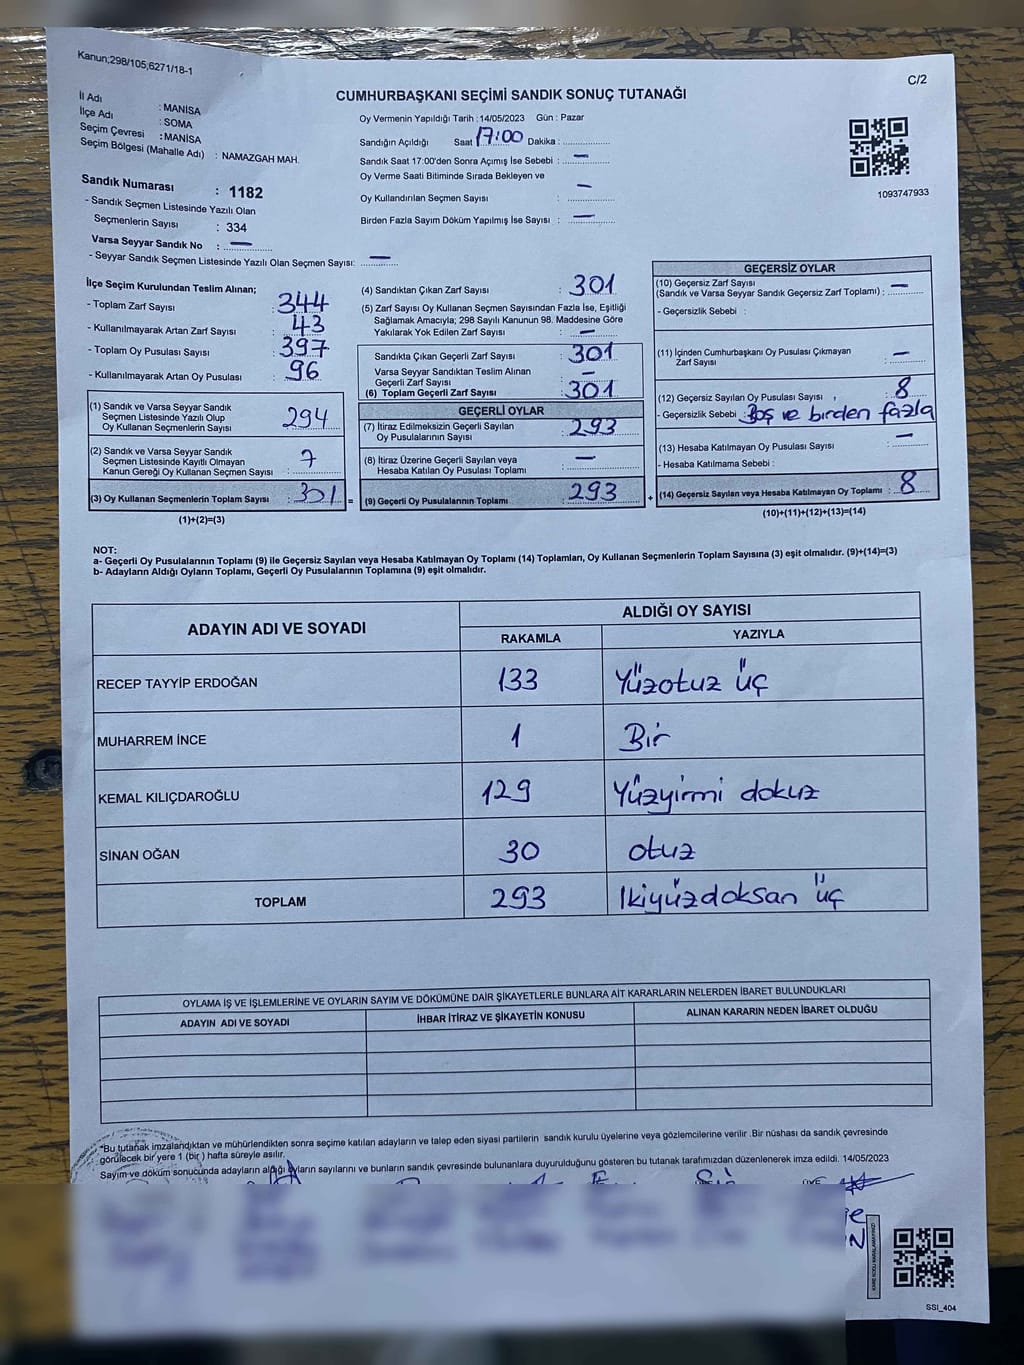 Kanun;298/105;6271/18-1
C/2
CUMHURBAŞKANI SEÇİMİ SANDIK SONUÇ TUTANAĞI
İl Adı : MANİSA
İlçe Adı : SOMA
Seçim Çevresi : MANİSA
Seçim Bölgesi (Mahalle Adı) : NAMAZGAH MAH.
Sandık Numarası : 1182
- Sandık Seçmen Listesinde Yazılı Olan
Seçmenlerin Sayısı : 334
Varsa Seyyar Sandık No : —
- Seyyar Sandık Seçmen Listesinde Yazılı Olan Seçmen Sayısı: —
Oy Vermenin Yapıldığı Tarih : 14/05/2023 Gün : Pazar
Sandığın Açıldığı Saat 17:00 Dakika :
Sandık Saat 17:00'den Sonra Açımış İse Sebebi : —
Oy Verme Saati Bitiminde Sırada Bekleyen ve
Oy Kullandırılan Seçmen Sayısı : —
Birden Fazla Sayım Döküm Yapılmış İse Sayısı : —
1093747933
İlçe Seçim Kurulundan Teslim Alınan;
- Toplam Zarf Sayısı : 344
- Kullanılmayarak Artan Zarf Sayısı : 43
- Toplam Oy Pusulası Sayısı : 397
- Kullanılmayarak Artan Oy Pusulası : 96
(1) Sandık ve Varsa Seyyar Sandık
Seçmen Listesinde Yazılı Olup
Oy Kullanan Seçmenlerin Sayısı : 294
(2) Sandık ve Varsa Seyyar Sandık
Seçmen Listesinde Kayıtlı Olmayan
Kanun Gereği Oy Kullanan Seçmen Sayısı : 7
(3) Oy Kullanan Seçmenlerin Toplam Sayısı : 301 =
(1)+(2)=(3)
(4) Sandıktan Çıkan Zarf Sayısı : 301
(5) Zarf Sayısı Oy Kullanan Seçmen Sayısından Fazla İse, Eşitliği
Sağlamak Amacıyla; 298 Sayılı Kanunun 98. Maddesine Göre
Yakılarak Yok Edilen Zarf Sayısı : —
Sandıkta Çıkan Geçerli Zarf Sayısı : 301
Varsa Seyyar Sandıktan Teslim Alınan
Geçerli Zarf Sayısı : —
(6) Toplam Geçerli Zarf Sayısı : 301
GEÇERLİ OYLAR
(7) İtiraz Edilmeksizin Geçerli Sayılan
Oy Pusulalarının Sayısı : 293
(8) İtiraz Üzerine Geçerli Sayılan veya
Hesaba Katılan Oy Pusulası Toplamı : —
(9) Geçerli Oy Pusulalarının Toplamı : 293 +
GEÇERSİZ OYLAR
(10) Geçersiz Zarf Sayısı
(Sandık ve Varsa Seyyar Sandık Geçersiz Zarf Toplamı) : —
- Geçersizlik Sebebi :
(11) İçinden Cumhurbaşkanı Oy Pusulası Çıkmayan
Zarf Sayısı : —
(12) Geçersiz Sayılan Oy Pusulası Sayısı : 8
- Geçersizlik Sebebi : Boş ve birden fazla
(13) Hesaba Katılmayan Oy Pusulası Sayısı : —
- Hesaba Katılmama Sebebi :
(14) Geçersiz Sayılan veya Hesaba Katılmayan Oy Toplamı : 8
(10)+(11)+(12)+(13)=(14)
NOT:
a- Geçerli Oy Pusulalarının Toplamı (9) ile Geçersiz Sayılan veya Hesaba Katılmayan Oy Toplamı (14) Toplamları, Oy Kullanan Seçmenlerin Toplam Sayısına (3) eşit olmalıdır. (9)+(14)=(3)
b- Adayların Aldığı Oyların Toplamı, Geçerli Oy Pusulalarının Toplamına (9) eşit olmalıdır.
ADAYIN ADI VE SOYADI ALDIĞI OY SAYISI
RAKAMLA YAZIYLA
RECEP TAYYİP ERDOĞAN 133 Yüzotuz üç
MUHARREM İNCE 1 Bir
KEMAL KILIÇDAROĞLU 129 Yüzyirmi dokuz
SİNAN OĞAN 30 otuz
TOPLAM 293 İkiyüzdoksan üç
OYLAMA İŞ VE İŞLEMLERİNE VE OYLARIN SAYIM VE DÖKÜMÜNE DAİR ŞİKAYETLERLE BUNLARA AİT KARARLARIN NELERDEN İBARET BULUNDUKLARI
ADAYIN ADI VE SOYADI İHBAR İTİRAZ VE ŞİKAYETİN KONUSU ALINAN KARARIN NEDEN İBARET OLDUĞU
*Bu tutanak imzalandıktan ve mühürlendikten sonra seçime katılan adayların ve talep eden siyasi partilerin sandık kurulu üyelerine veya gözlemcilerine verilir .Bir nüshası da sandık çevresinde
görülecek bir yere 1 (bir ) hafta süreyle asılır.
Sayım ve döküm sonucunda adayların aldığı oyların sayılarını ve bunların sandık çevresinde bulunanlara duyurulduğunu gösteren bu tutanak tarafımızdan düzenlenerek imza edildi. 14/05/2023
SSI_404